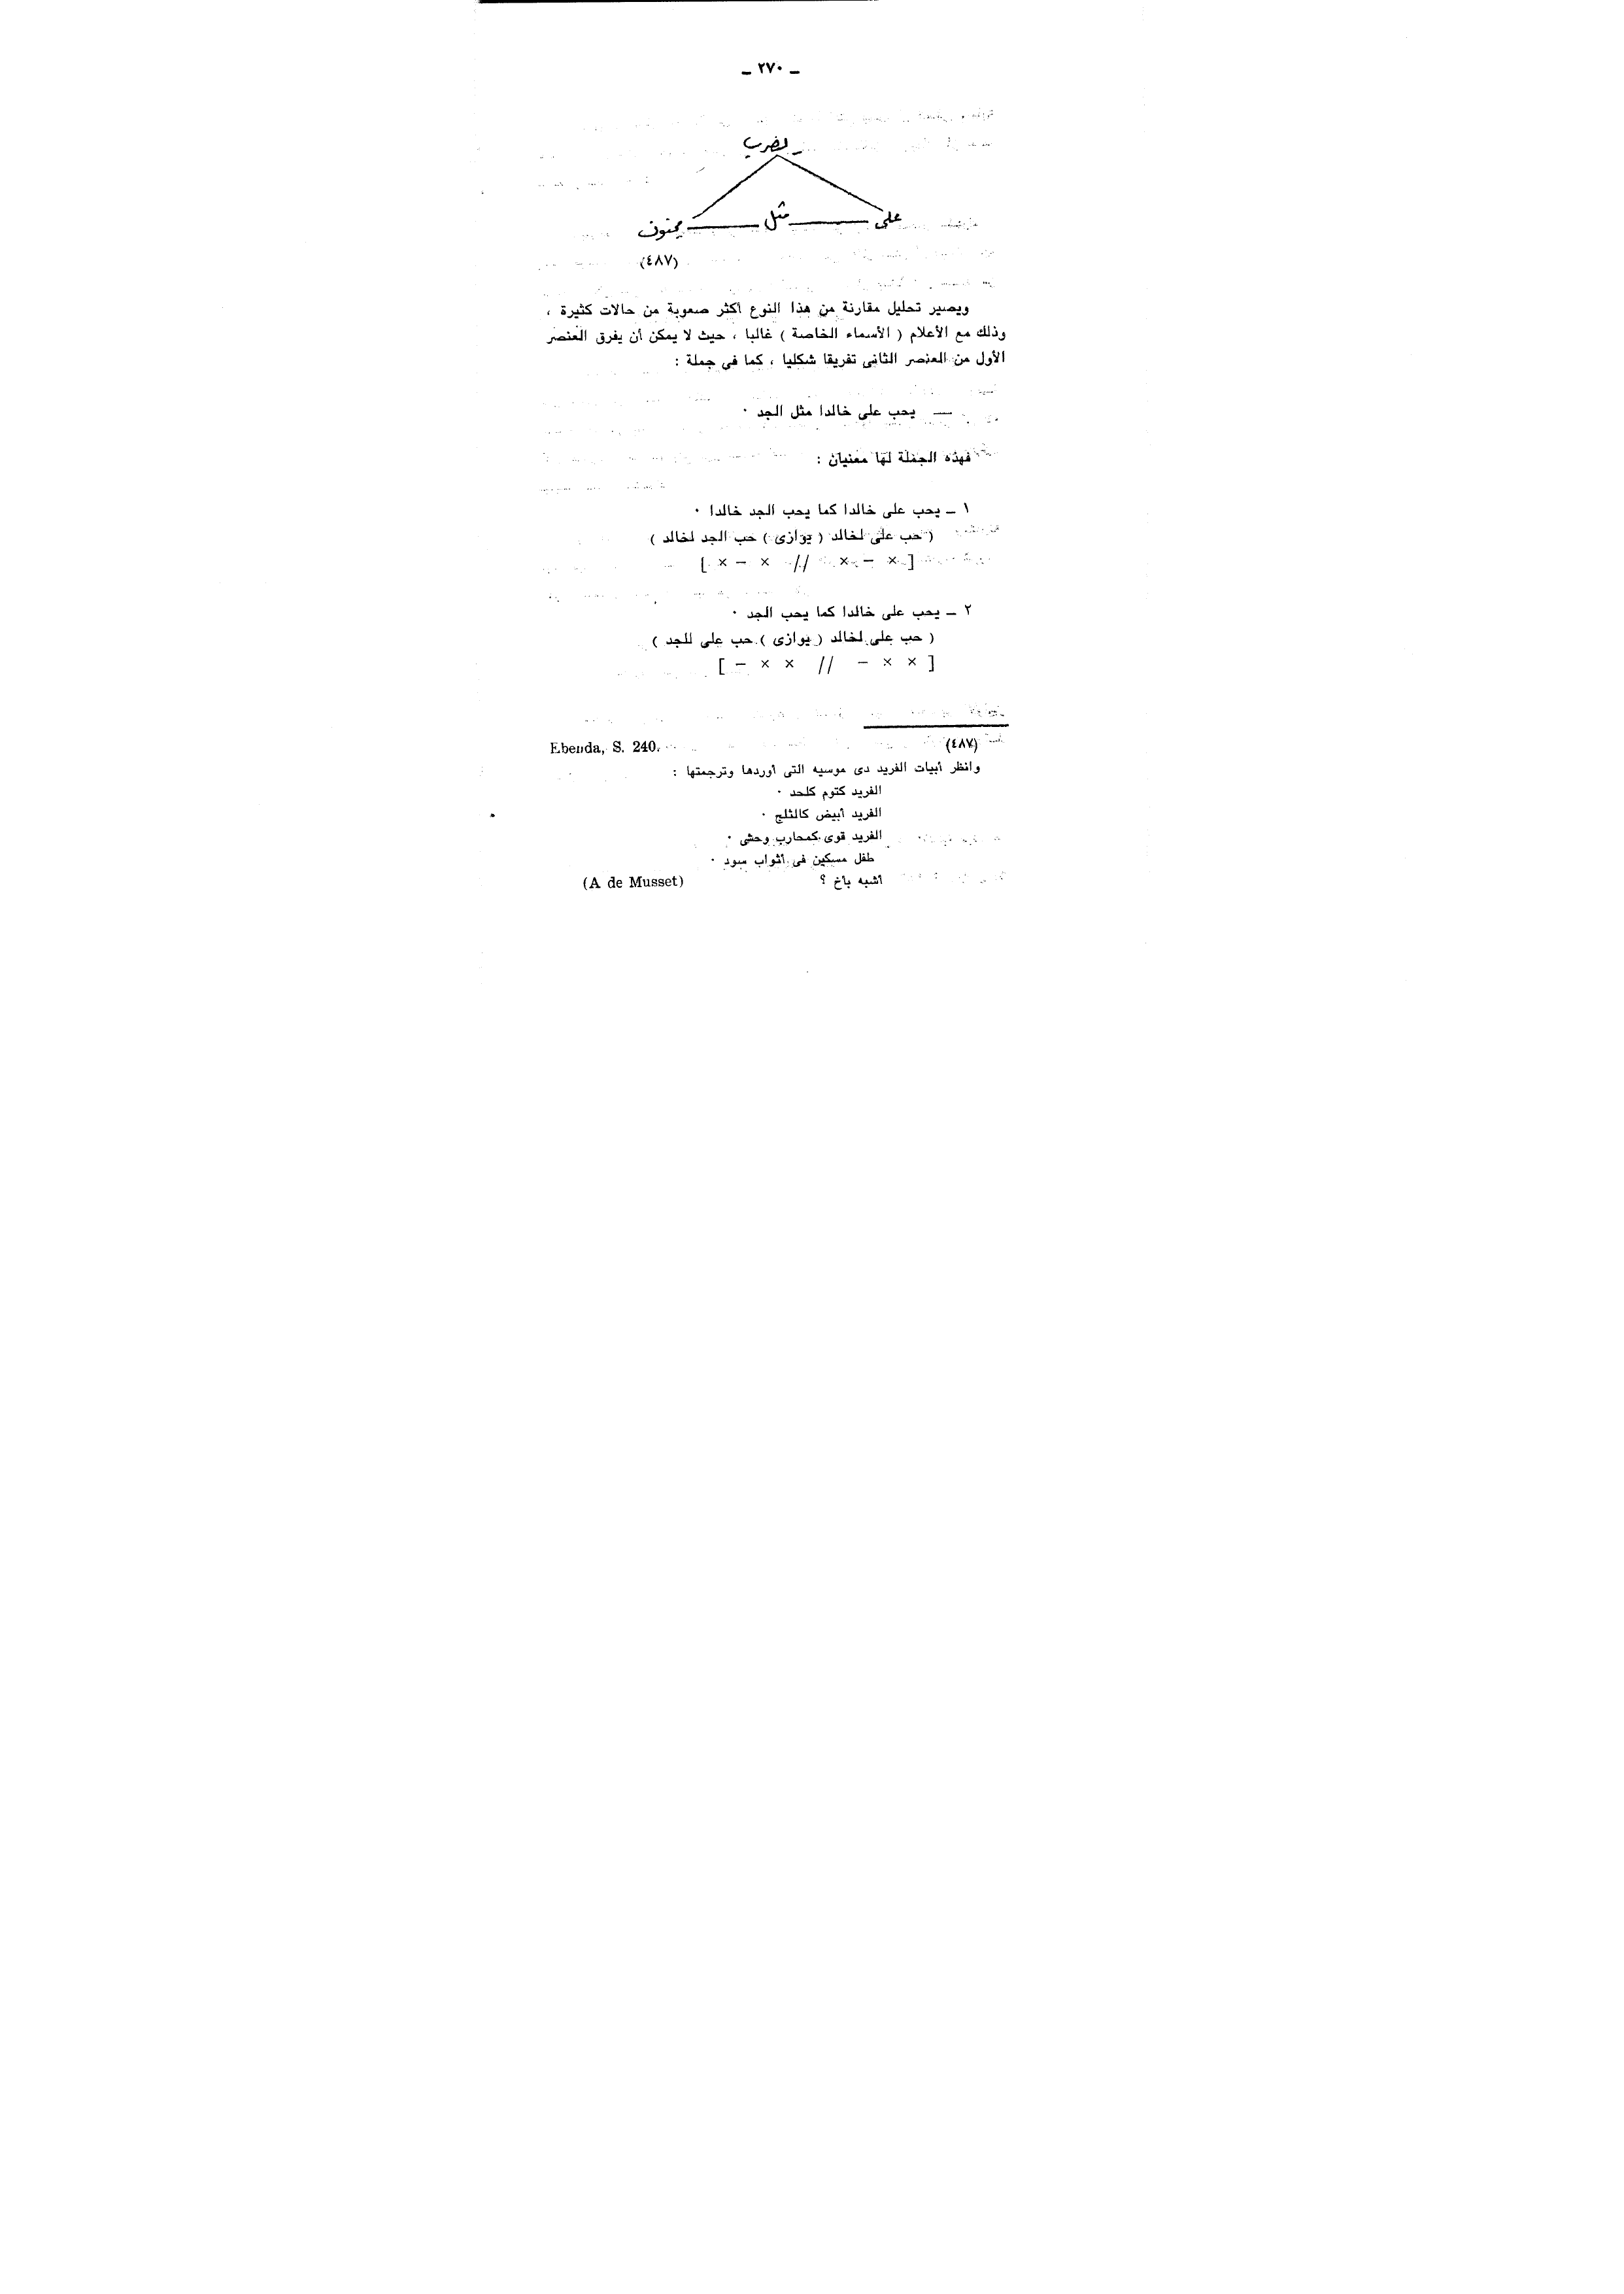 ـ ٢٧٠ ـ
يضرب
على ـــــ مثل ـــــ مجنون
(٤٨٧)
ويصير تحليل مقارنة من هذا النوع أكثر صعوبة من حالات كثيرة ،
وذلك مع الأعلام ( الأسماء الخاصة ) غالبا ، حيث لا يمكن أن يفرق العنصر
الأول من العنصر الثانى تفريقا شكليا ، كما فى جملة :
— يحب على خالدا مثل الجد ٠
فهذه الجملة لها معنيان :
١ ـ يحب على خالدا كما يحب الجد خالدا ٠
( حب على لخالد ( يوازى ) حب الجد لخالد )
[ × – × // × – × ]
٢ ـ يحب على خالدا كما يحب الجد ٠
( حب على لخالد ( يوازى ) حب على للجد )
[ × × – // × × – ]
(٤٨٧) Ebenda, S. 240.
وانظر أبيات الفريد دى موسيه التى أوردها وترجمتها :
الفريد كتوم كلحد ٠
الفريد أبيض كالثلج ٠
الفريد قوى كمحارب وحشى ٠
طفل مسكين فى أثواب سود ٠
أشبه بأخ ؟ (A de Musset)